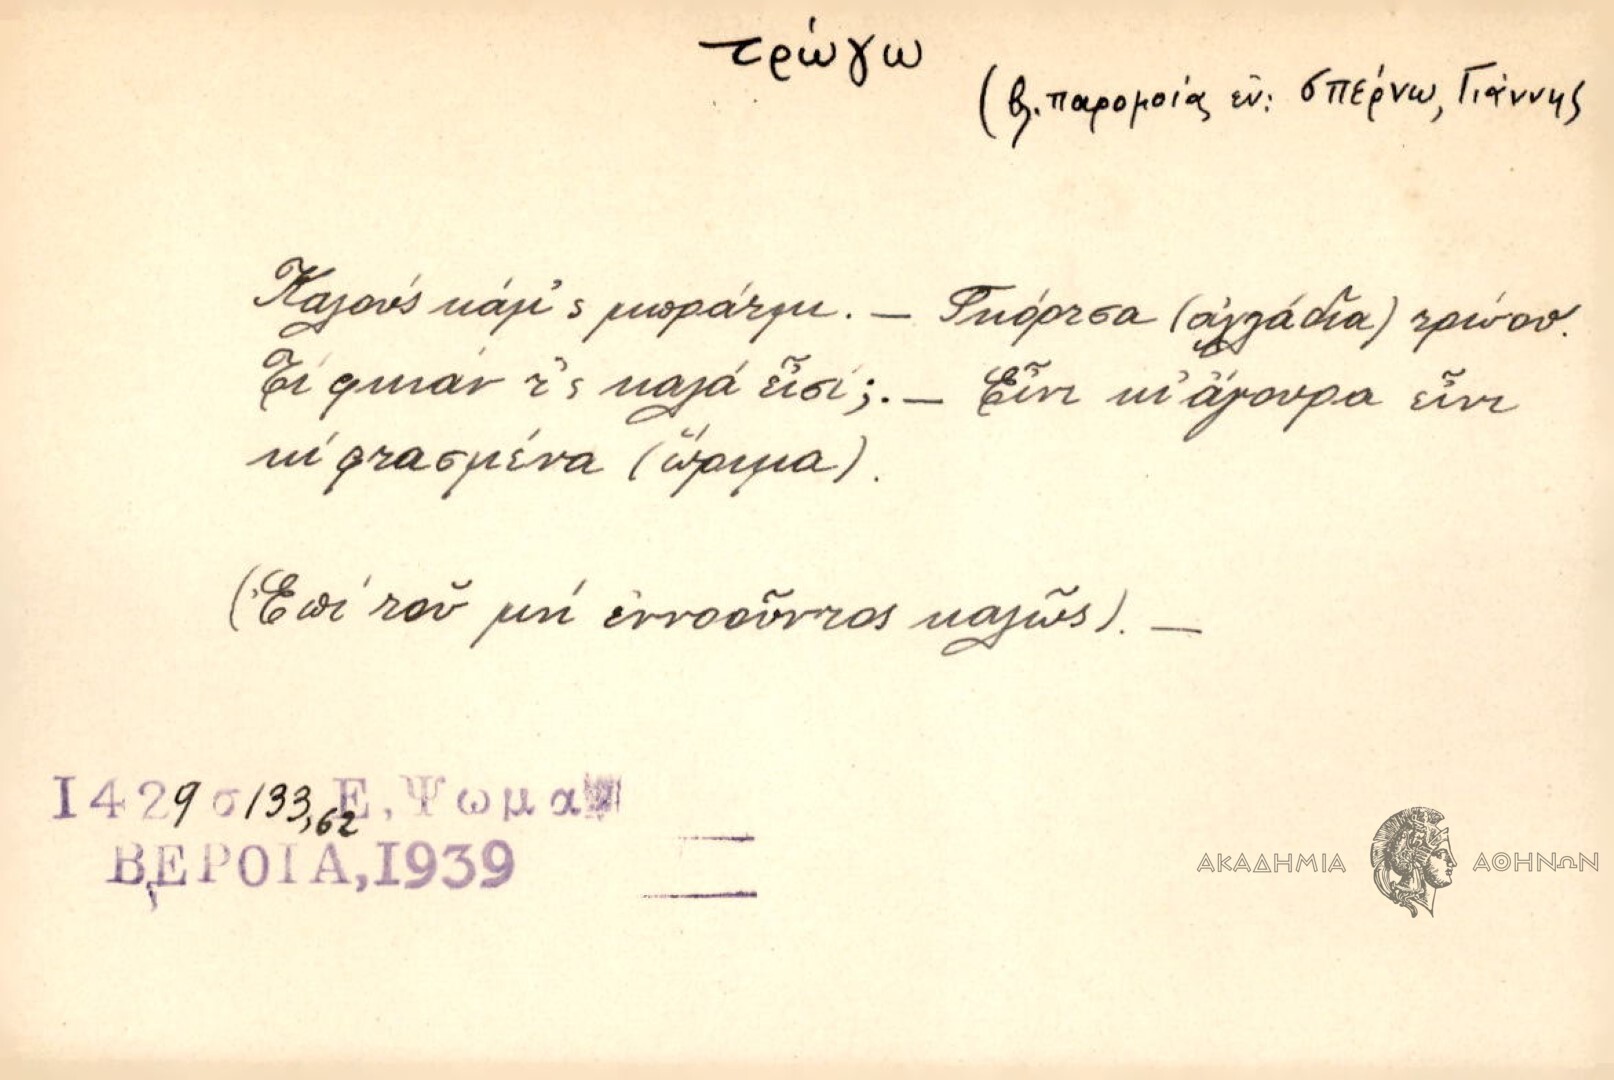 τρώγω
(βλ. παρομοίας εν: σπέρνω, Γιάννης
Καλούς κάμ'ς μπράτιμ. — Γκόρτσα (ἀχλάδια) τρώου.
Τί φκιάν τ'ς καλά εἶσι; . — Εἶνι κι ἄγουρα εἶνι
κί φτασμένα (ὥριμα).
(Ἐπί τοῦ μή ἐννοοῦντος καλῶς). —
1429 σ 133, 62 Ε. Ψωμα
ΒΕΡΟΙΑ, 1939
ΑΚΑΔΗΜΙΑ ΑΘΗΝΩΝ